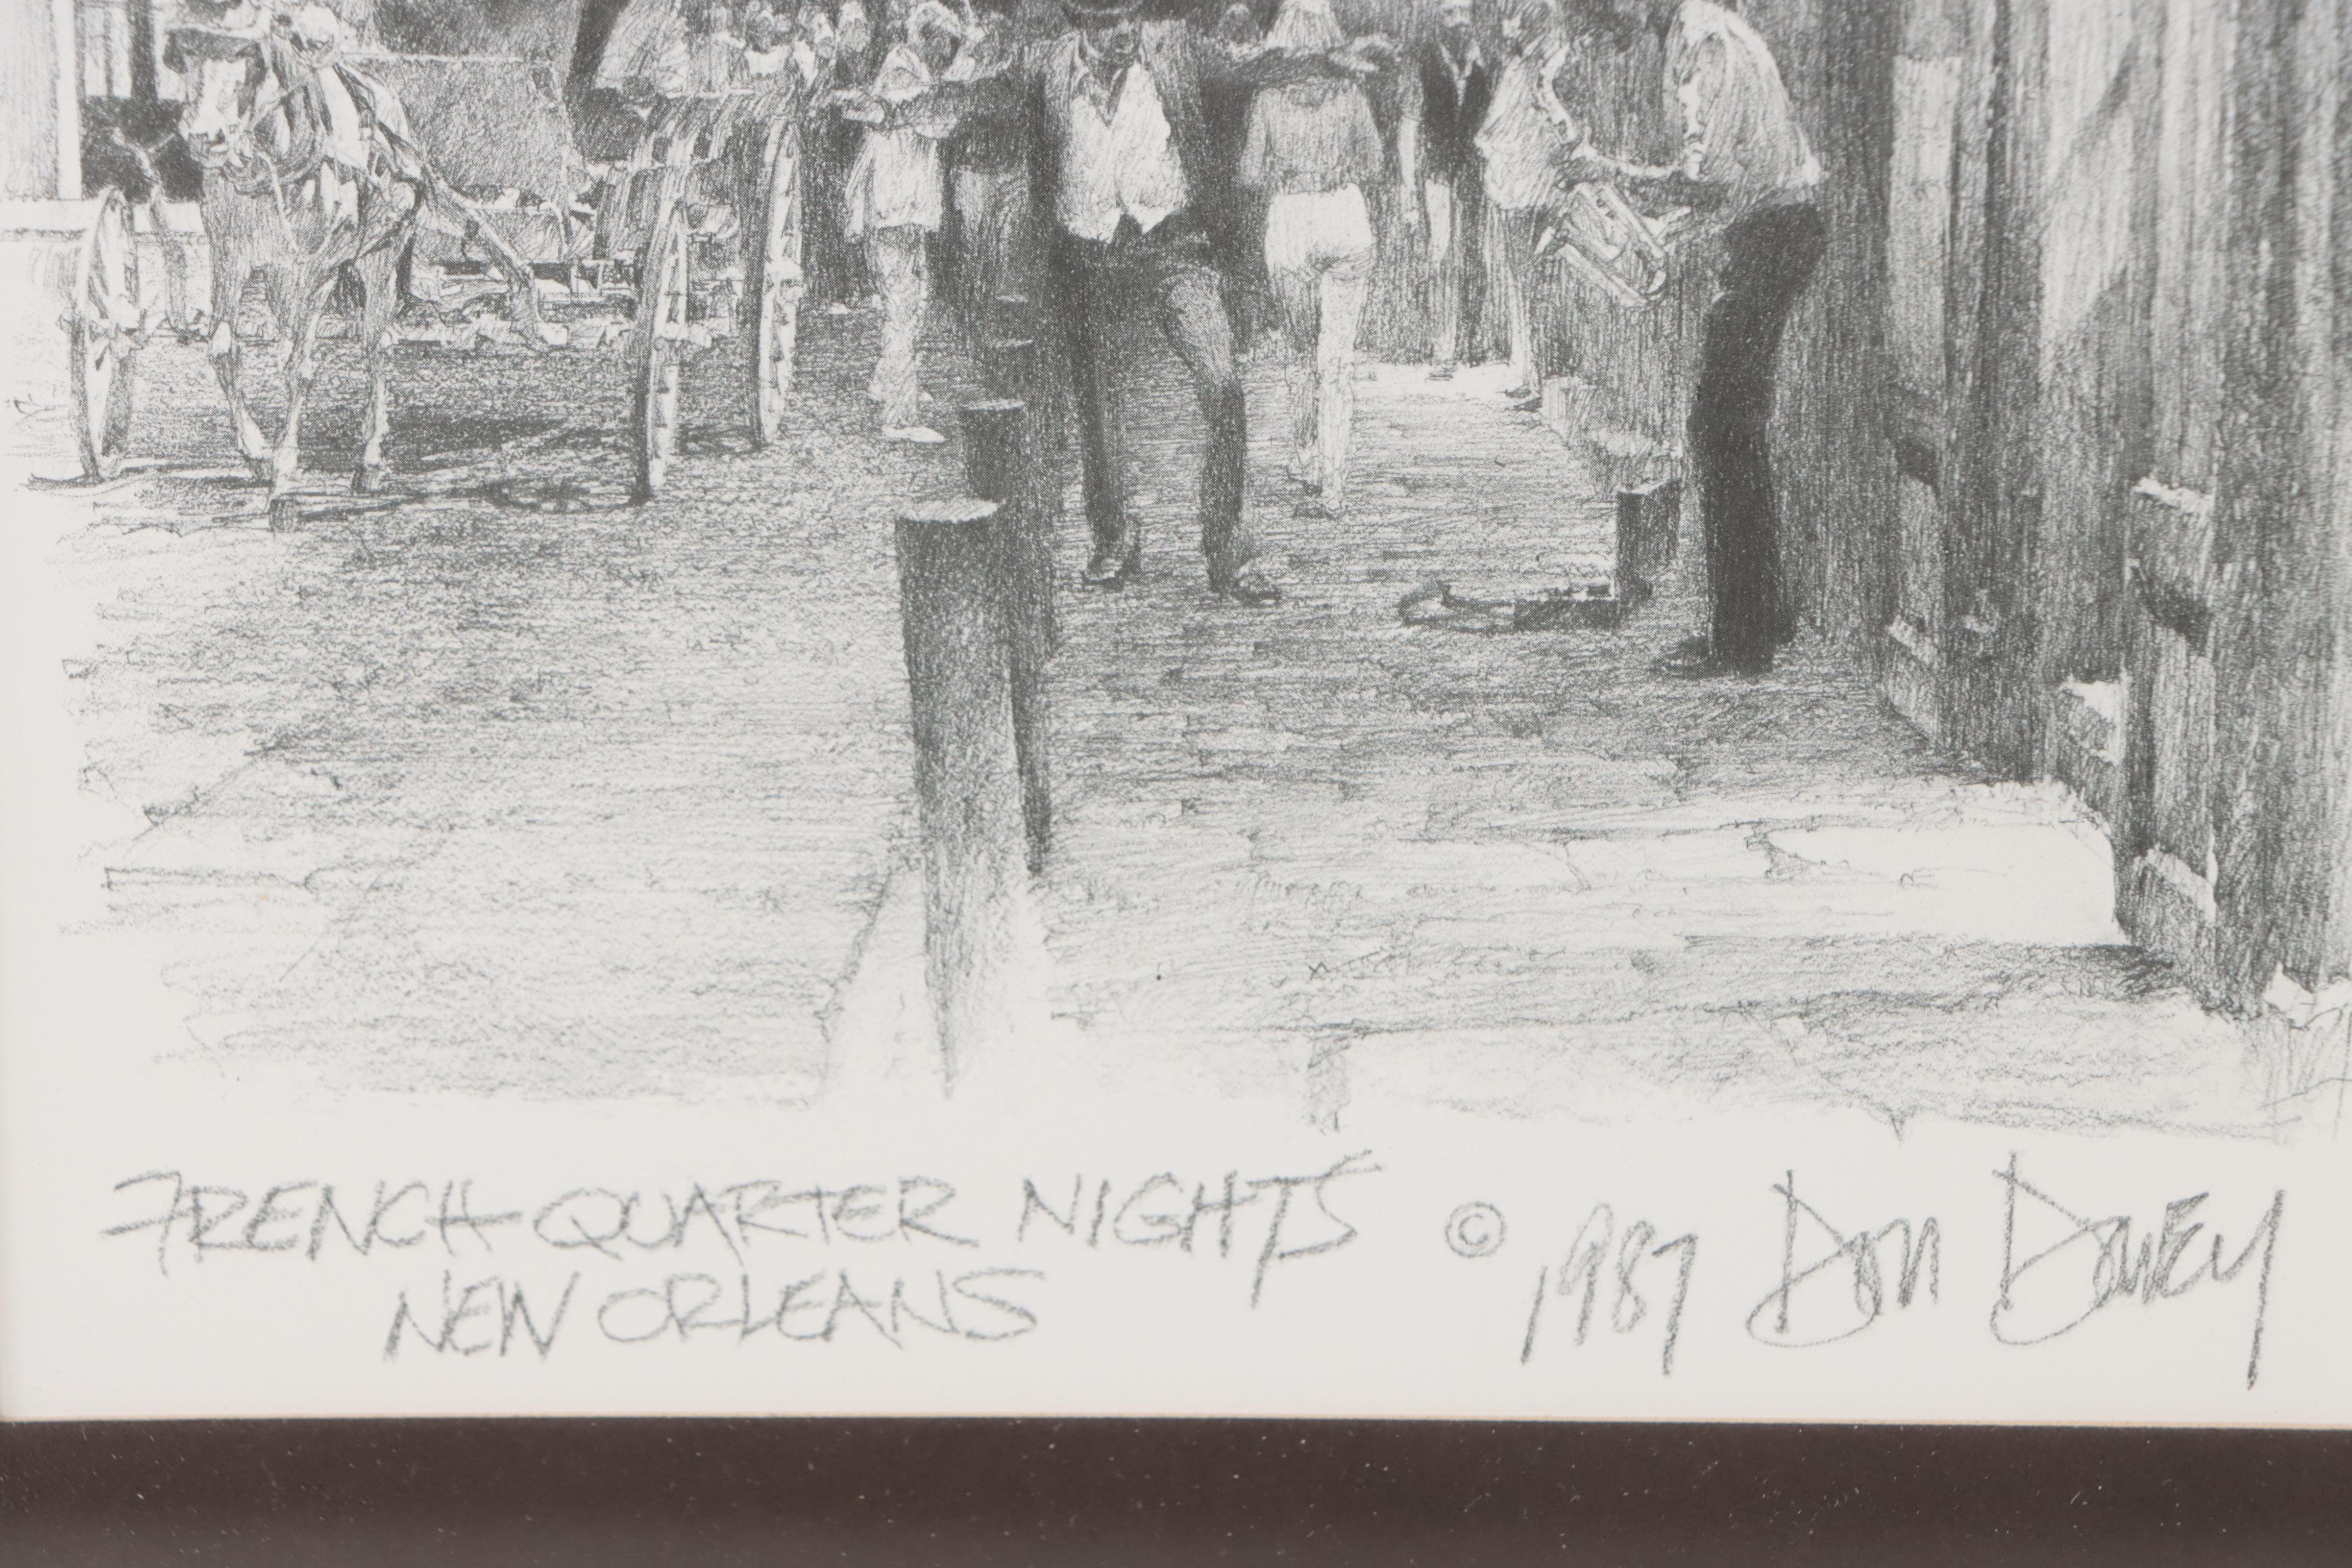 FRENCH QUARTER NIGHTS
NEW ORLEANS
© 1987 Don Davey